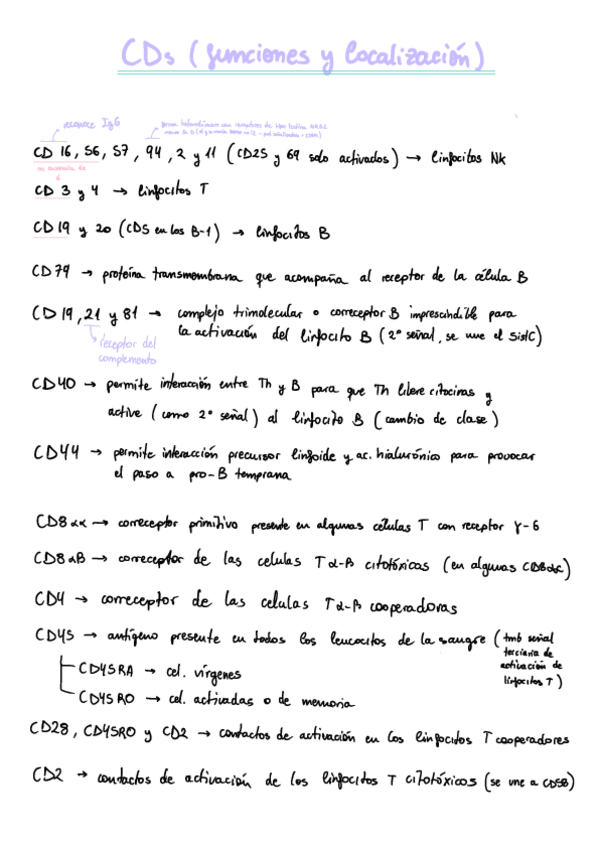 CDs (funciones y localización)
reconoce IgG
CD 16, 56, 57, 94, 2 y 11 (CD25 y 69 solo activados) → linfocitos NK
CD 3 y 4 → linfocitos T
CD 19 y 20 (CD5 en los B-1) → linfocitos B
CD 79 → proteína transmembrana que acompaña al receptor de la célula B
CD 19, 21 y 81 → complejo trimolecular o correceptor B imprescindible para
la activación del linfocito B (2º señal, se une el SistC)
receptor del
complemento
CD40 → permite interacción entre Th y B para que Th libere citocinas y
active (como 2º señal) al linfocito B (cambio de clase)
CD44 → permite interacción precursor linfoide y ac. hialurónico para provocar
el paso a pro-B temprana
CD8αα → correceptor primitivo presente en algunas células T con receptor γ-δ
CD8αB → correceptor de las celulas T α-β citotóxicas (en algunas CD8αα)
CD4 → correceptor de las celulas T α-β cooperadoras
CD45 → antígeno presente en todos los leucocitos de la sangre (tmb señal
terciaria de
activación de
linfocitos T)
CD45RA → cel. vírgenes
CD45RO → cel. activadas o de memoria
CD28, CD45RO y CD2 → contactos de activación en los linfocitos T cooperadores
CD2 → contactos de activación de los linfocitos T citotóxicos (se une a CD58)